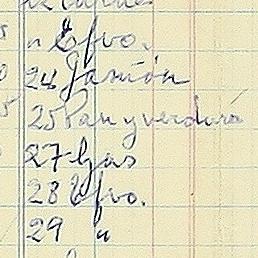 " Efvo.
24 Jamón
25 Pan y verdura
27 Gas
28 Efvo.
29 "